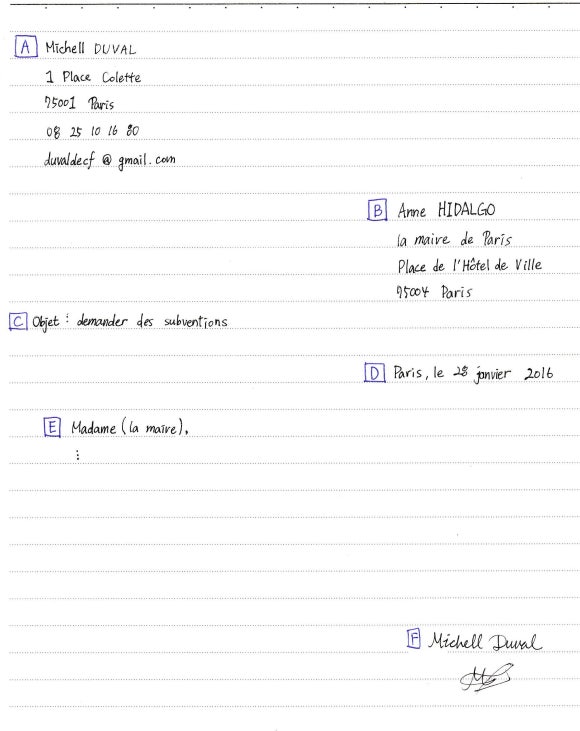 A Michell DUVAL
1 Place Colette
75001 Paris
08 25 10 16 80
duvaldecf @ gmail.com
B Anne HIDALGO
la maire de Paris
Place de l'Hôtel de Ville
75004 Paris
C Objet : demander des subventions
D Paris, le 28 janvier 2016
E Madame (la maire),
⋮
F Michell Duval